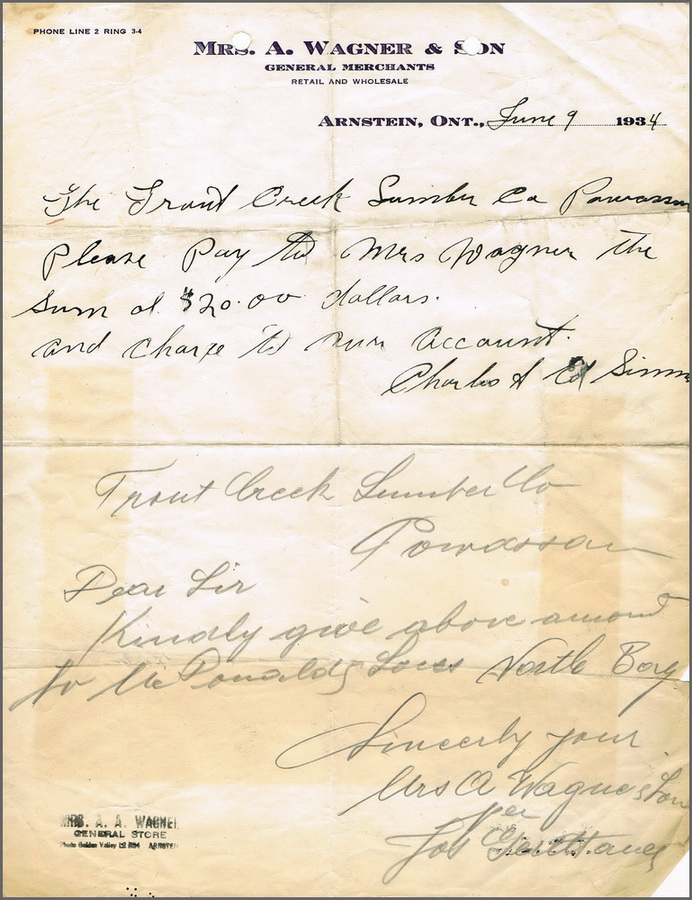 PHONE LINE 2 RING 3-4
MRS. A. WAGNER & SON
GENERAL MERCHANTS
RETAIL AND WHOLESALE
ARNSTEIN, ONT., June 9 1934
The Trout Creek Lumber Co Powassan
Please Pay to Mrs Wagner the
sum of $20.00 dollars.
and charge to our account.
Charles & Ed Simm
Trout Creek Lumber Co
Powassan
Dear Sir
Kindly give above amount
to McDonald North Bay
Sincerly your
Mrs A Wagner & Son
per
Jos
MRS. A. A. WAGNER
GENERAL STORE
Phone Golden Valley L2 R04 ARNSTEIN